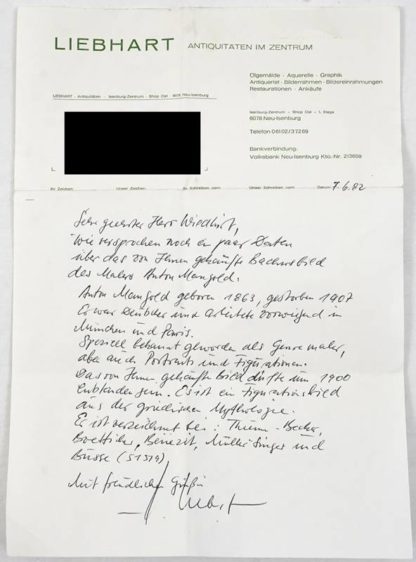 LIEBHART ANTIQUITÄTEN IM ZENTRUM
Ölgemälde · Aquarelle · Graphik
Antiquariat · Bilderrahmen · Bildereinrahmungen
Restaurationen · Ankäufe
LIEBHART · Antiquitäten · Isenburg-Zentrum · Shop 254 · 6078 Neu-Isenburg
Isenburg-Zentrum · Shop 254 · 1. Etage
6078 Neu-Isenburg
Telefon 06102/37269
Bankverbindung:
Volksbank Neu-Isenburg Kto.-Nr. 213608
Ihr Zeichen Unser Zeichen Ihr Schreiben vom Unser Schreiben vom Datum 7.6.82
Sehr geehrter Herr
wie versprochen noch ein paar Daten
über das von Ihnen gekaufte Bachusbild
des Malers Anton Mangold.
Anton Mangold geboren 1863, gestorben 1907
Er war und arbeitete vorwiegend in
München und Paris.
Speziell bekannt geworden als Genremaler,
aber auch Portraits und Figurationen.
Das von Ihnen gekaufte Bild dürfte um 1900
entstanden sein. Es ist ein Figurationsbild
aus der griechischen Mythologie.
Er ist verzeichnet bei: Thieme-Becker,
Boetticher, Benezit, Müller Singer und
Busse (51379)
Mit freundlichen Grüßen